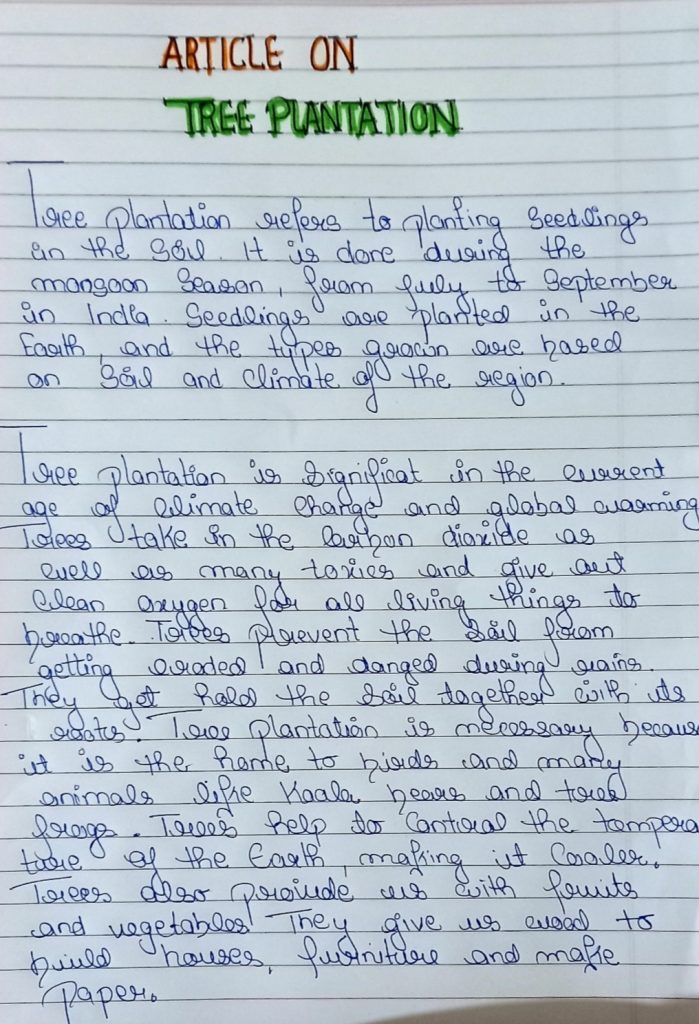 ARTICLE ON
TREE PLANTATION
Tree plantation refers to planting Seedlings
in the Soil. It is done during the
monsoon Season, from July to September
in India. Seedlings are planted in the
Earth, and the types grown are based
on Soil and Climate of the region.
Tree plantation is Significat in the current
age of Climate Change and global warming
Trees take in the Carbon dioxide as
well as many toxics and give out
Clean oxygen for all living things to
breathe. Trees prevent the Soil from
getting eroded and danged during rains.
They get hold the Soil together with its
roots. Tree plantation is necessary becaus
it is the home to birds and many
animals like Koala bears and tree
frogs. Trees help to Control the tempera
ture of the Earth, making it Cooler.
Trees also provide us with fruits
and vegetables They give us wood to
build houses, furniture and make
Paper.